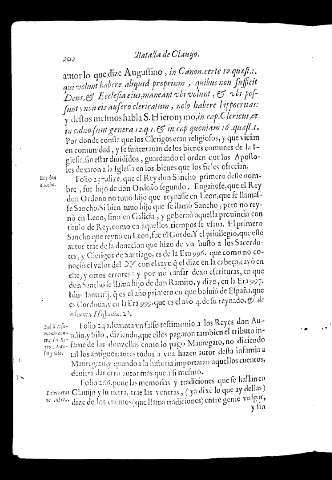 202 Batalla de Clauijo.
autor lo que dize Augustino, in Canon. certe 12. quest. 1.
qui volunt habere aliquid proprium, quibus non sufficit
Deus, & Ecclesia eius, maneant vbi volunt, & vbi pos-
sunt, non eis aufero clericatum, nolo habere hippocritas:
y destos mesmos habla S. Hieronymo, in cap. Clericus, et
in c. duo sunt genera 12. q. 1. & in cap. quoniam 16. quest. 1.
Por donde consta que los Clerigos eran religiosos, y que viuian
en comunidad, y se sustentauan de los bienes comunes de la I-
glesia, sin estar diuididos, guardando el orden que los Aposto-
les dexaron a la Iglesia en los bienes que los fieles ofrecian.
Folio 237. dize, que el Rey don Sancho primero deste nom-
bre, fue hijo de don Ordoño segundo. Engañese, que el Rey
don Ordoño no tuuo hijo que reynasse en Leon, que se llamas-
se Sancho. Si bien tuuo hijo que se llamò Sancho, pero no rey-
nò en Leon, sino en Galicia, y gouernò aquella prouincia con
titulo de Rey, como en aquellos tiempos se vsaua. El primero
Sancho que reyno en Leon, fue el Gordo. Y el priuilegio, que este
autor trae de la donacion que hizo de vn busto a los Sacerdo-
tes, y Clerigos de Santiago, es de la Era 996. que como no co-
nocio el valor del
este, y otros errores: y por no cansar dexo escrituras, en que
don Sancho se llama hijo de don Ramiro, y dize, en la Era 997.
que es el año primero en que boluio de España, que
es Cordoua, y en la Era 999. que es el año 4. de su reynado, & de
Folio 242. leuanta vn falso testimonio a los Reyes don Au-
relio, y Silo, diziendo, que ellos pagaron tambien el tributo in-
fame de las donzellas como lo pago Mauregato, no diziendo
tal los antiguos: antes todos a vna hazen autor desta infamia a
Mauregato, y quando a la historia importaran aquellos cuentos,
deuiera dar otro autor mas que a si mesmo.
Folio 266. pone las memorias y tradiciones que se hallan en
Clauijo y su tierra, tras las veneras, (ya dixe lo que ay dellas)
dize de los cuentos (que llama tradiciones) entre gente vulgar,
y sin